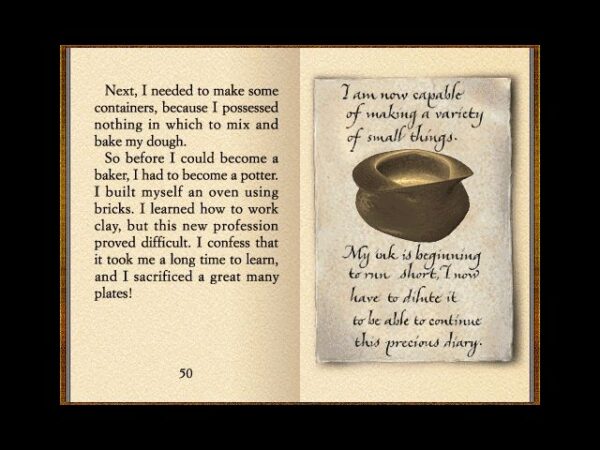 Next, I needed to make some
containers, because I possessed
nothing in which to mix and
bake my dough.
So before I could become a
baker, I had to become a potter.
I built myself an oven using
bricks. I learned how to work
clay, but this new profession
proved difficult. I confess that
it took me a long time to learn,
and I sacrificed a great many
plates!
50
I am now capable
of making a variety
of small things.
My ink is beginning
to run short, I now
have to dilute it
to be able to continue
this precious diary.